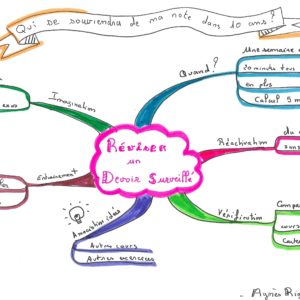 Qui se souviendra de ma note dans 10 ans?
Une semaine
20 minutes tous
en plus
Calcul 5 m
Quand?
Imagination
Réviser
un
Devoir Surveillé
Réactivation
du
sans
Entrainement
Association idées
Autres cours
Autres exercices
Vérification
Comp
cours
Cartes
Agnès Rig